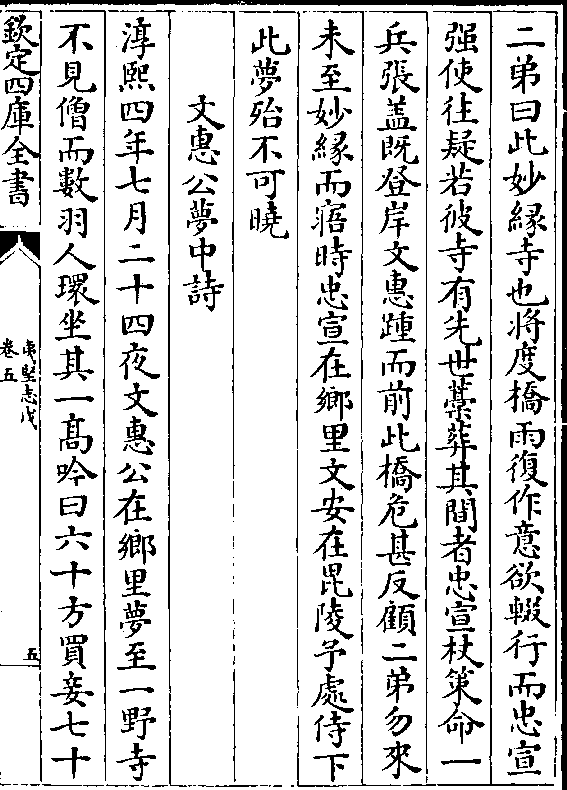 二弟曰此妙緣寺也將度橋雨復作意欲輟行而忠宣
强使往疑若彼寺有先世藁葬其間者忠宣杖策命一
兵張盖既登岸文惠踵而前此橋危甚反顧二弟勿來
未至妙緣而寤時忠宣在鄉里文安在毘陵予處侍下
此夢殆不可曉
文惠公夢中詩
淳熙四年七月二十四夜文惠公在鄉里夢至一野寺
不見僧而數羽人環坐其一髙吟曰六十方買妾七十
欽定四庫全書
夷堅志戊
卷五
五